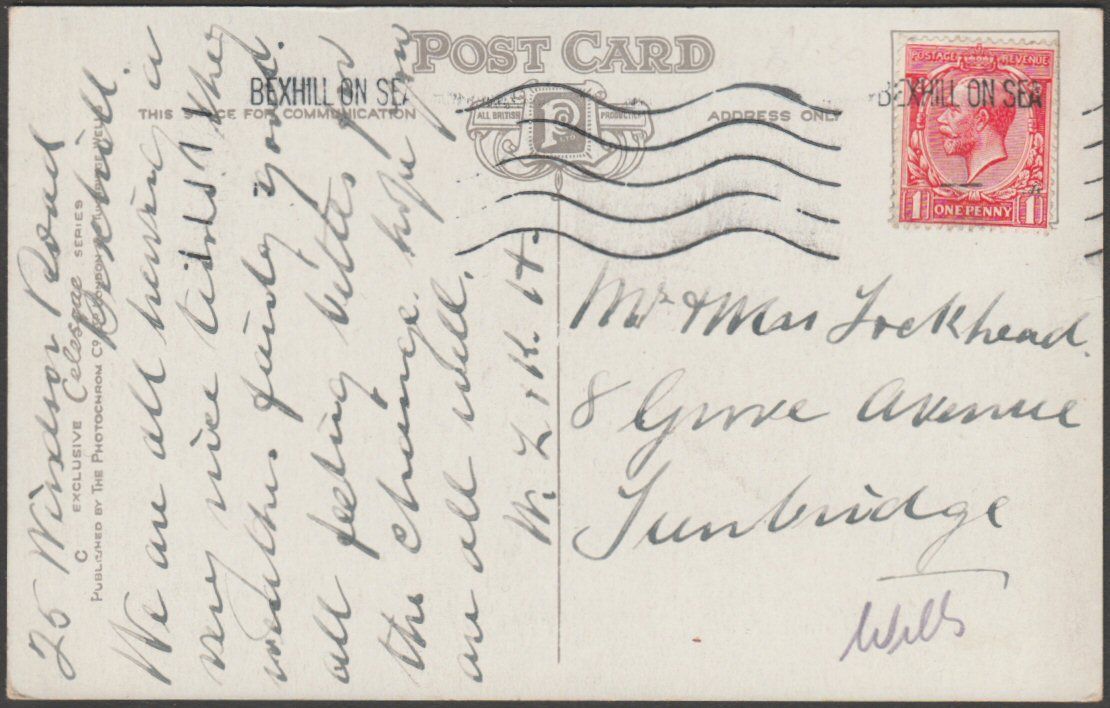 POST CARD
THIS SPACE FOR COMMUNICATION
ADDRESS ONLY
ALL BRITISH
PRODUCTION
BEXHILL ON SEA
BEXHILL ON SEA
POSTAGE REVENUE
1 ONE PENNY 1
C EXCLUSIVE Celesque SERIES
PUBLISHED BY THE PHOTOCHROM CO. LTD LONDON & TUNBRIDGE WELLS
25 Windsor Road
Bexhill
We are all having a
very nice time. The
weather fairly good.
all feeling better for
the change. hope you
are all well.
W. L & K. H.
Mr & Mrs Lockhead.
8 Grove Avenue
Tunbridge
Wells